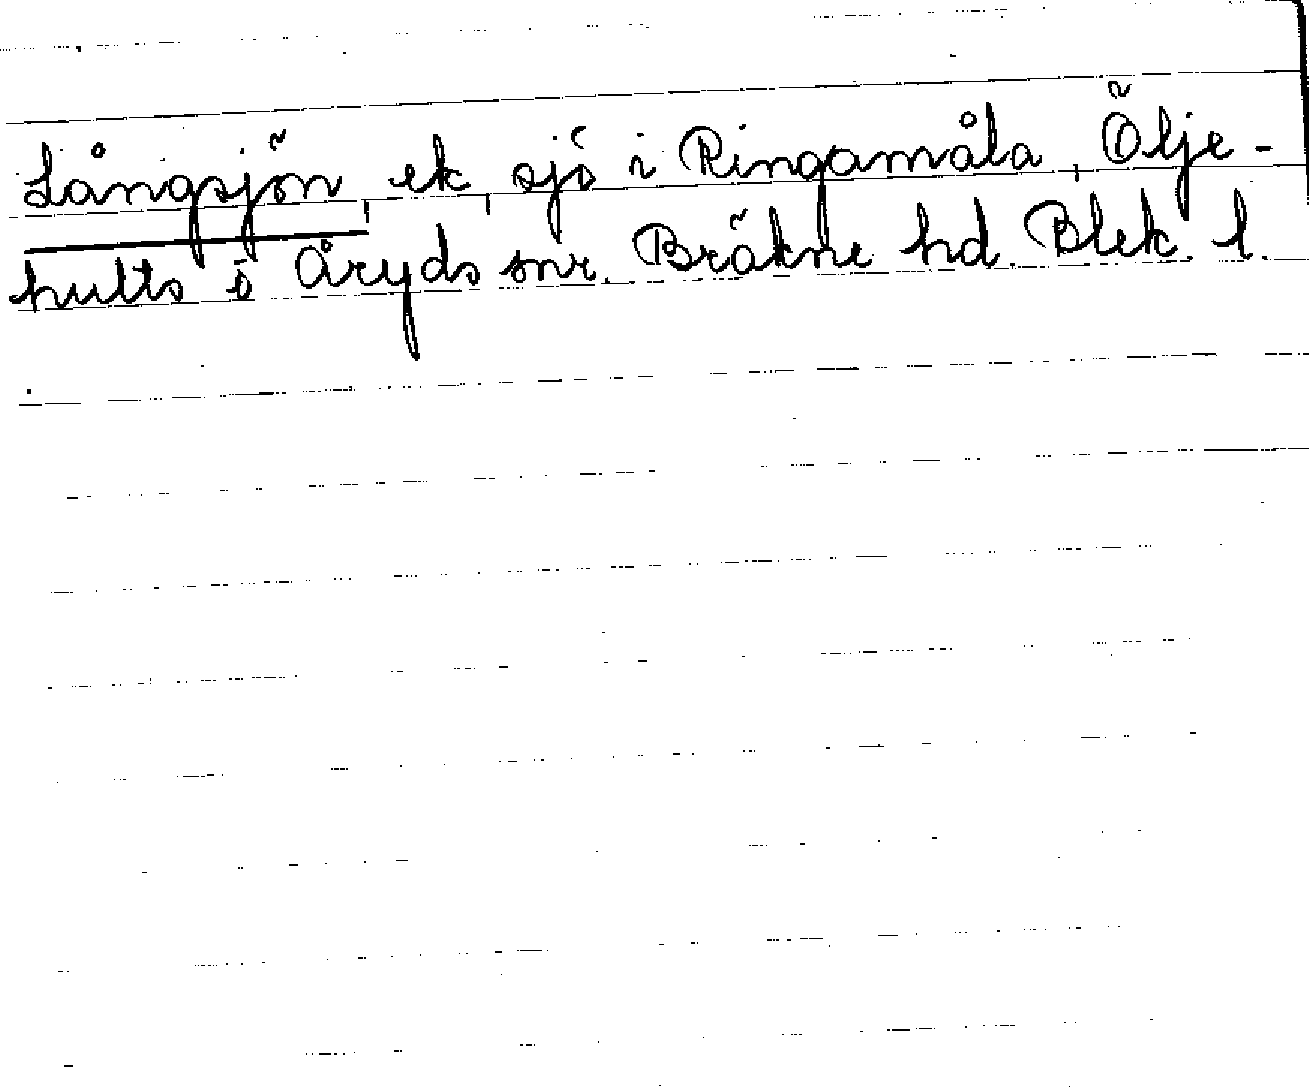 Långsjön, ek, sjö i Ringamåla, Ölje-
hults o Åryds snr. Bräkne hd. Blek. l.